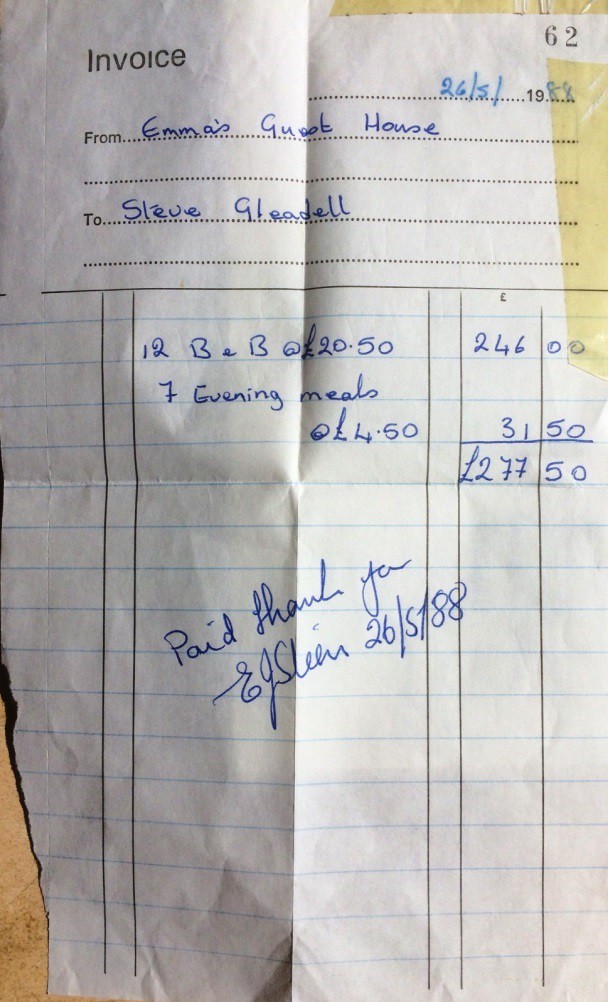 62
Invoice
26/5/ 1988
From Emma's Guest House
To Steve Gleadell
£
12 B & B @ £20.50 246 00
7 Evening meals
@ £4.50 31 50
£277 50
Paid thank you
26/5/88